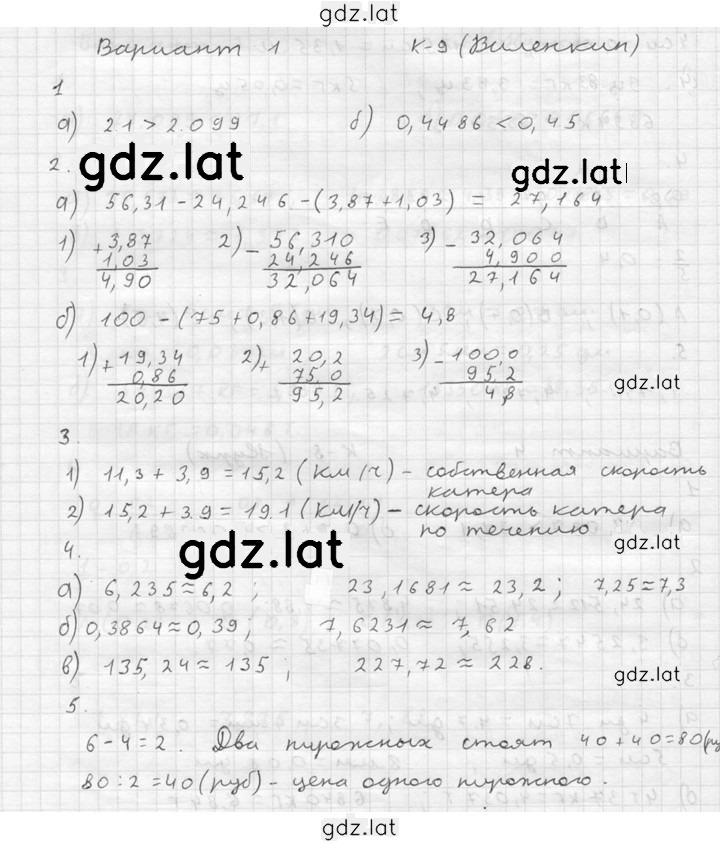 gdz.lat
Вариант 1 К-9 (Виленкин)
1
а) 2.1 > 2.099 б) 0,4486 < 0,45
2.
gdz.lat gdz.lat
а) 56,31 - 24,246 - (3,87 + 1,03) = 27,164
1) + 3,87 2) - 56,310 3) - 32,064
1,03 24,246 4,900
4,90 32,064 27,164
б) 100 - (75 + 0,86 + 19,34) = 4,8
1) + 19,34 2) + 20,2 3) - 100,0
0,86 75.0 95,2
20,20 95,2 4,8
gdz.lat
3.
1) 11,3 + 3,9 = 15,2 (км/ч) - собственная скорость
катера
2) 15,2 + 3.9 = 19.1 (км/ч) - скорость катера
по течению
gdz.lat gdz.lat
4.
а) 6,235 ≈ 6,2 ; 23,1681 ≈ 23,2 ; 7,25 ≈ 7,3
б) 0,3864 ≈ 0,39 ; 7,6231 ≈ 7,62
в) 135,24 ≈ 135 ; 227,72 ≈ 228.
gdz.lat
5.
6 - 4 = 2 . Два пирожных стоят 40 + 40 = 80 (ру
80 : 2 = 40 (руб) - цена одного пирожного.
gdz.lat